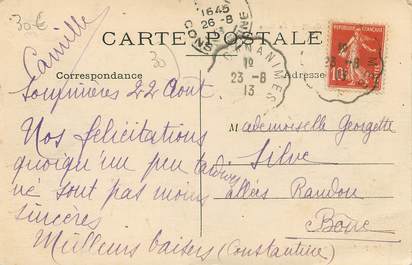 30€
Camille
1645
26-8
13
CONSTANTINE
CARTE POSTALE
RÉPUBLIQUE FRANÇAISE
10
Correspondance
Adresse
1º
23-8
13
Sommières 22 Août.
Nos félicitations
quoiqu'un peu tardives
ne sont pas moins
sincères
Meilleurs baisers
Mademoiselle Georgette
Silve
allées Randon
Bône
(Constantine)